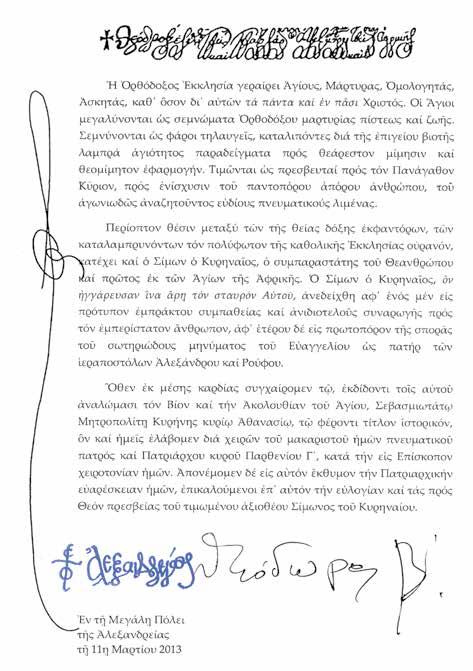 Ἡ Ὀρθόδοξος Ἐκκλησία γεραίρει Ἁγίους, Μάρτυρας, Ὁμολογητάς,
Ἀσκητάς, καθ᾽ ὅσον δι᾽ αὐτῶν τά πάντα καί ἐν πᾶσι Χριστός. Οἱ Ἅγιοι
μεγαλύνονται ὡς σεμνώματα Ὀρθοδόξου μαρτυρίας πίστεως καί ζωῆς.
Σεμνύνονται ὡς φάροι τηλαυγεῖς, καταλιπόντες διά τῆς ἐπιγείου βιοτῆς
λαμπρά ἁγιότητος παραδείγματα πρός θεάρεστον μίμησιν καί
θεομίμητον ἐφαρμογήν. Τιμῶνται ὡς πρεσβευταί πρός τόν Πανάγαθον
Κύριον, πρός ἐνίσχυσιν τοῦ παντοπόρου ἀπόρου ἀνθρώπου, τοῦ
ἀγωνιωδῶς ἀναζητοῦντος εὐδίους πνευματικούς λιμένας.
Περίοπτον θέσιν μεταξύ τῶν τῆς θείας δόξης ἐκφαντόρων, τῶν
καταλαμπρυνόντων τόν πολύφωτον τῆς καθολικῆς Ἐκκλησίας οὐρανόν,
κατέχει καί ὁ Σίμων ὁ Κυρηναῖος, ὁ συμπαραστάτης τοῦ Θεανθρώπου
καί πρῶτος ἐκ τῶν Ἁγίων τῆς Ἀφρικῆς. Ὁ Σίμων ὁ Κυρηναῖος, ὃν
ἠγγάρευσαν ἵνα ἄρῃ τόν σταυρόν Αὐτοῦ, ἀνεδείχθη ἀφ᾽ ἑνός μέν εἰς
πρότυπον ἐμπράκτου συμπαθείας καί ἀνιδιοτελοῦς συναρωγῆς πρός
τόν ἐμπερίστατον ἄνθρωπον, ἀφ᾽ ἑτέρου δέ εἰς πρωτοπόρον τῆς σπορᾶς
τοῦ σωτηριώδους μηνύματος τοῦ Εὐαγγελίου ὡς πατήρ τῶν
ἱεραποστόλων Ἀλεξάνδρου καί Ρούφου.
Ὅθεν ἐκ μέσης καρδίας συγχαίρομεν τῷ, ἐκδίδοντι τοῖς αὐτοῦ
ἀναλώμασι τόν Βίον καί τήν Ἀκολουθίαν τοῦ Ἁγίου, Σεβασμιωτάτῳ
Μητροπολίτῃ Κυρήνης κυρίῳ Ἀθανασίῳ, τῷ φέροντι τίτλον ἱστορικόν,
ὃν καί ἡμεῖς ἐλάβομεν διά χειρῶν τοῦ μακαριστοῦ ἡμῶν πνευματικοῦ
πατρός καί Πατριάρχου κυροῦ Παρθενίου Γ΄, κατά τήν εἰς Ἐπίσκοπον
χειροτονίαν ἡμῶν. Ἀπονέμομεν δέ εἰς αὐτόν ἔκθυμον τήν Πατριαρχικήν
εὐαρέσκειαν ἡμῶν, ἐπικαλούμενοι ἐπ᾽ αὐτόν τήν εὐλογίαν καί τάς πρός
Θεόν πρεσβείας τοῦ τιμωμένου ἀξιοθέου Σίμωνος τοῦ Κυρηναίου.
Θεόδωρος Β΄
Ἐν τῇ Μεγάλῃ Πόλει
τῆς Ἀλεξανδρείας
τῇ 11ῃ Μαρτίου 2013